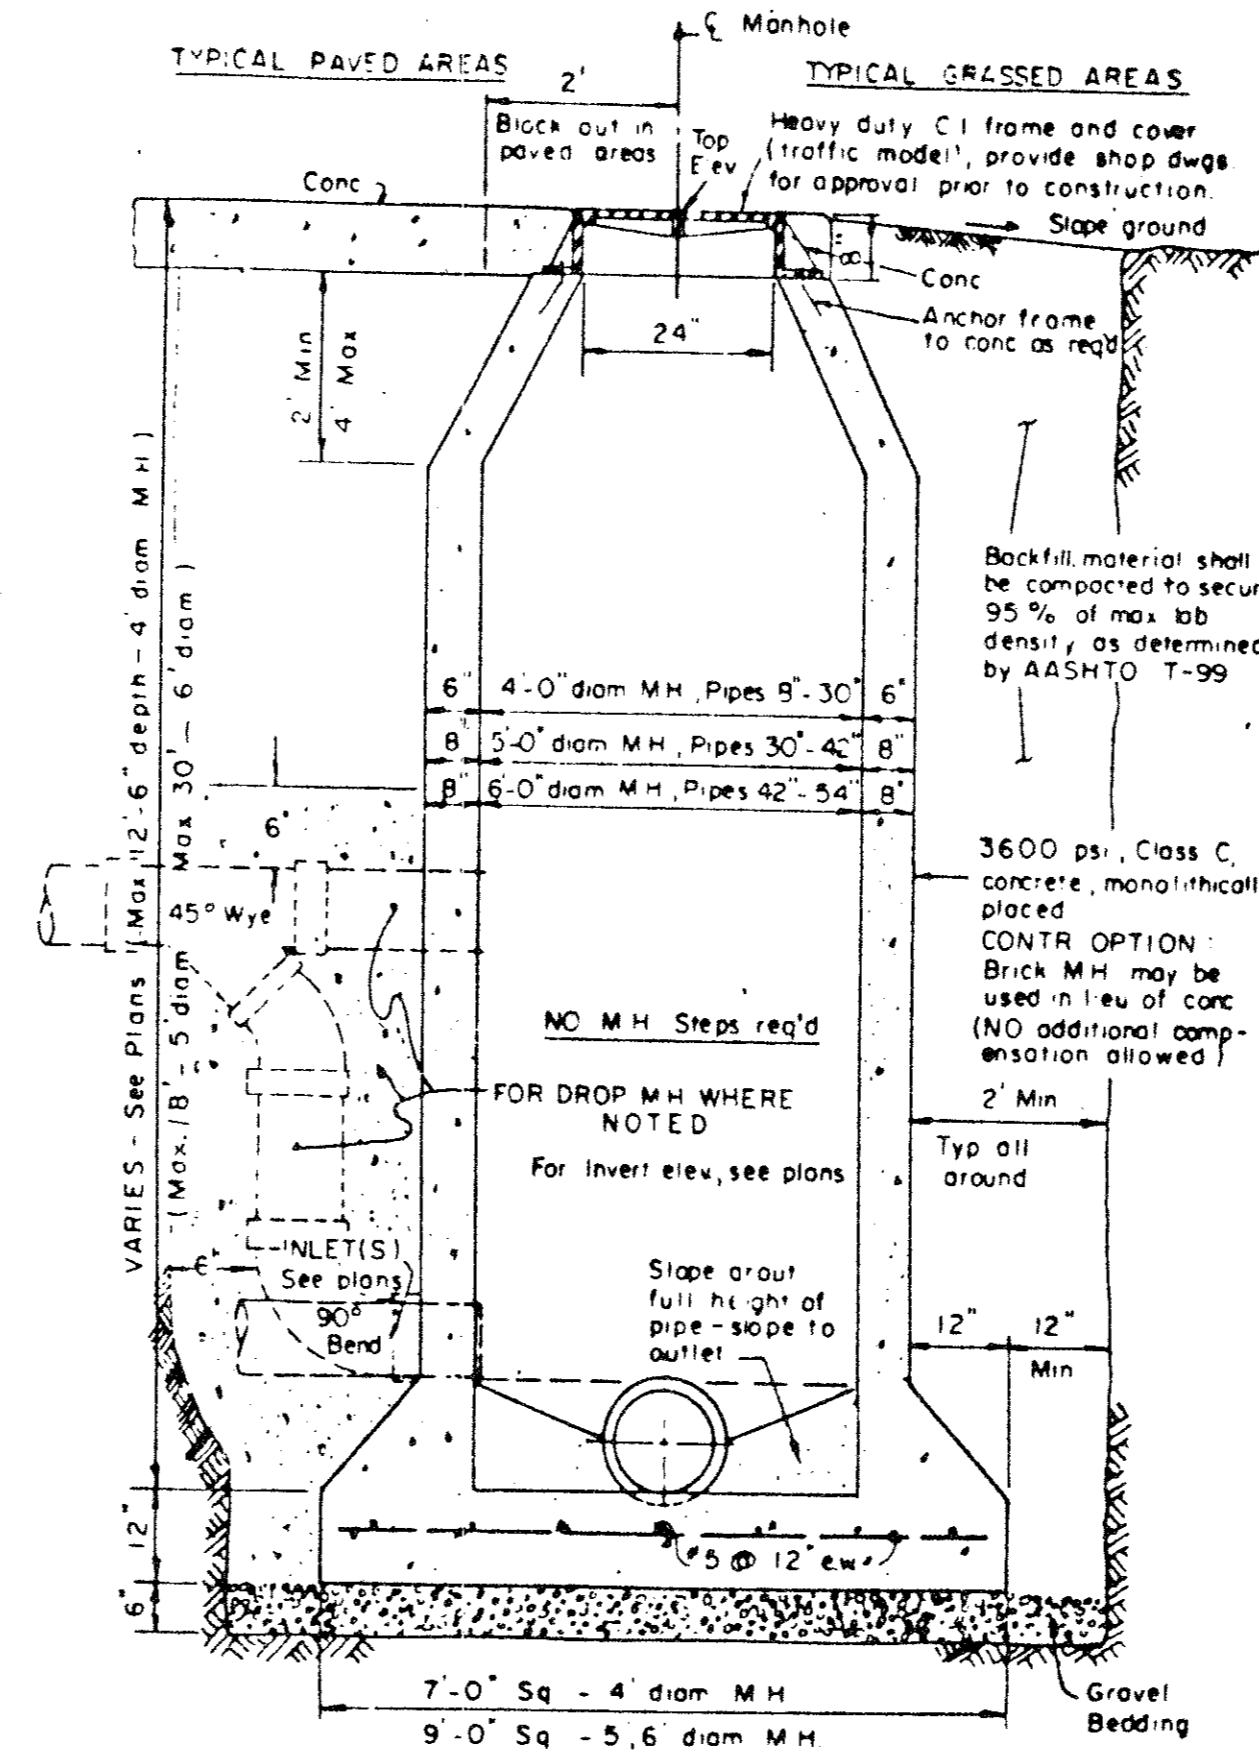 ℄ Manhole
TYPICAL PAVED AREAS
TYPICAL GRASSED AREAS
2'
Block out in
paved areas
Top
Elev
Heavy duty C I frame and cover
(traffic model), provide shop dwgs.
for approval prior to construction.
Conc
Slope ground
8"
Conc
Anchor frame
to conc as req'd
24"
2' Min
4' Max
Backfill material shall
be compacted to secur
95 % of max lab
density as determined
by AASHTO T-99
6" 4'-0" diam M H , Pipes 8"- 30" 6"
8" 5'-0" diam M H , Pipes 30"- 42" 8"
8" 6'-0" diam M H , Pipes 42"- 54" 8"
VARIES - See Plans (Max 12'-6" depth - 4' diam M H )
(Max. 18' - 5' diam Max 30' - 6' diam )
6"
45° Wye
3600 psi , Class C,
concrete , monolithicall
placed
CONTR OPTION :
Brick M H may be
used in lieu of conc
(NO additional comp-
ensation allowed )
NO M H Steps req'd
FOR DROP M H WHERE
NOTED
For Invert elev, see plans
2' Min
Typ all
around
INLET(S)
See plans
6"
90°
Bend
Slope grout
full height of
pipe - slope to
outlet
12" 12"
Min
12"
#5 @ 12" e.w.
6"
7'-0" Sq - 4' diam M H
9'-0" Sq - 5', 6' diam M H.
Gravel
Bedding